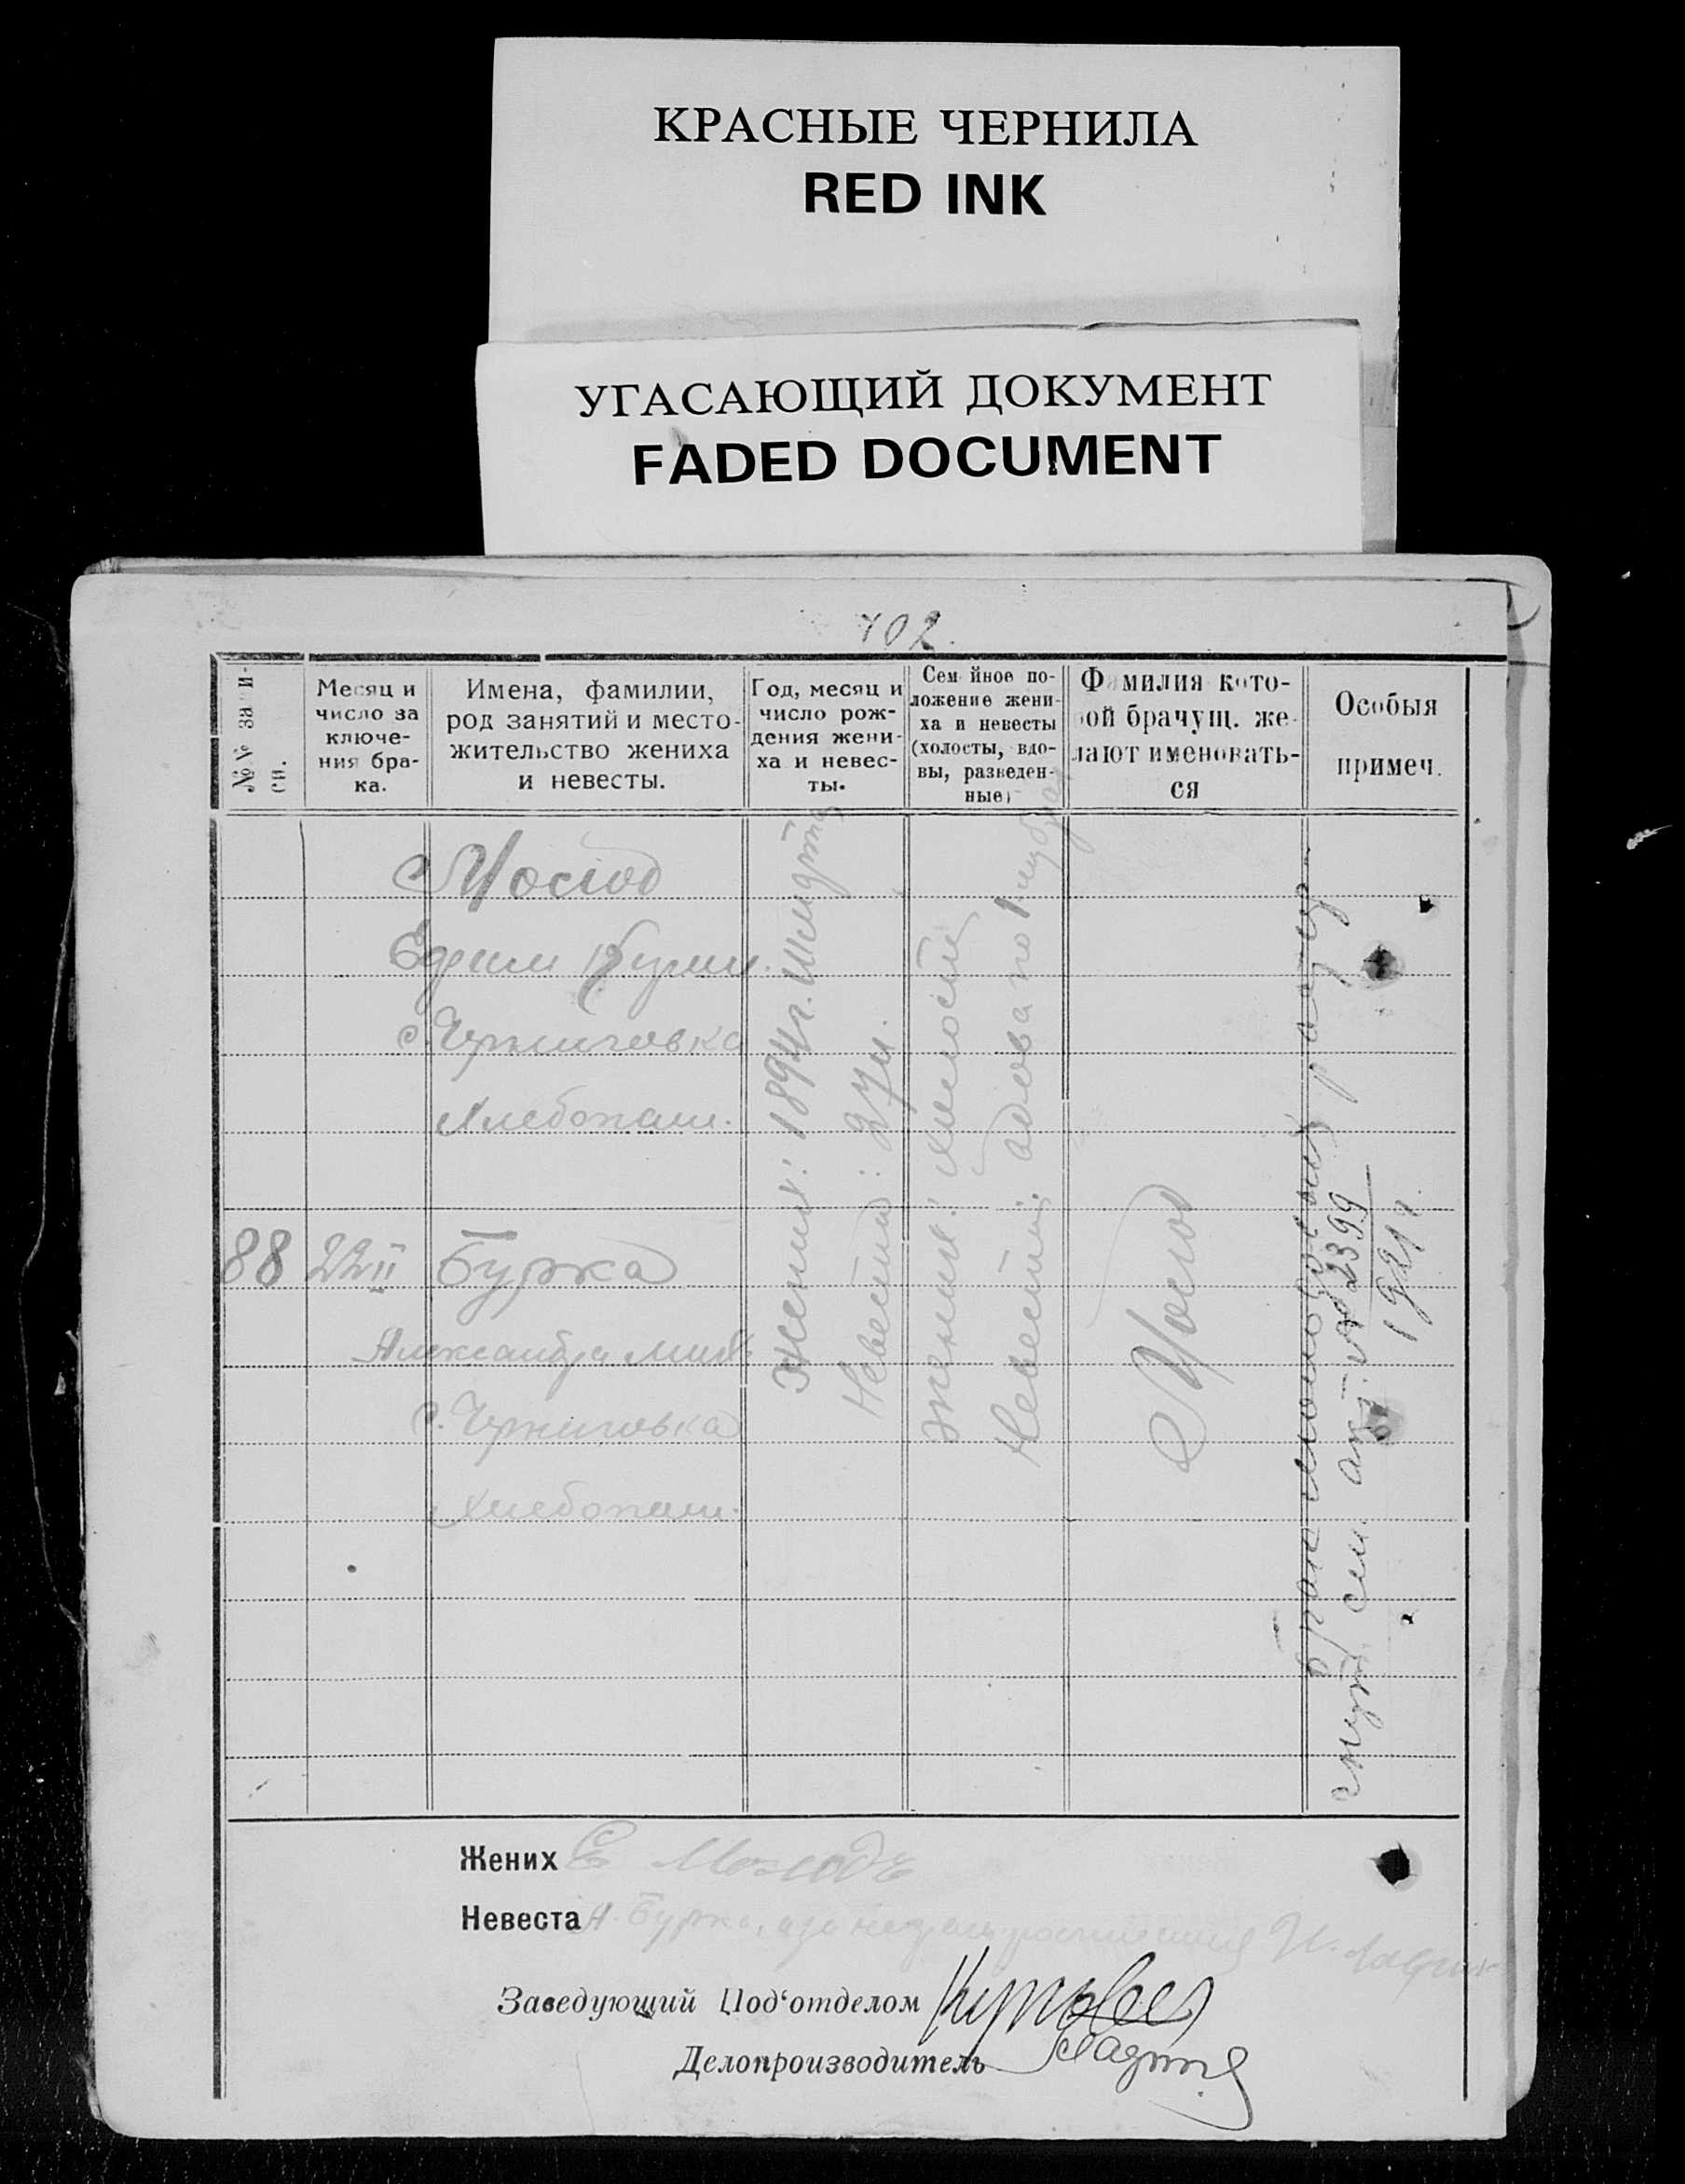 КРАСНЫЕ ЧЕРНИЛА
RED INK
УГАСАЮЩИЙ ДОКУМЕНТ
FADED DOCUMENT
102.
№№ запи-
си.
Месяц и
число за
ключе-
ния бра-
ка.
Имена, фамилии,
род занятий и место-
жительство жениха
и невесты.
Год, месяц и
число рож-
дения жени-
ха и невес-
ты.
Семейное по-
ложение жени-
ха и невесты
(холосты, вдо-
вы, разведен-
ные)
Фамилия кото-
рой брачущ. же-
лают именовать-
ся
Особыя
примеч.
Молод
Ефим
с. Черниговка
Хлебопаш.
88
22 II
Бурка
Александра Мих
с. Черниговка
Хлебопаш.
Жених: 1894 г.
Невеста: 27 л.
Жених: холост
Невеста: вдова по 1
Молод
брак
см. акт. № 2399
1921 г.
Жених Е Молодъ
Невеста А. Бурка, а за неграм
Заведующий Под‘отделом
Делопроизводитель